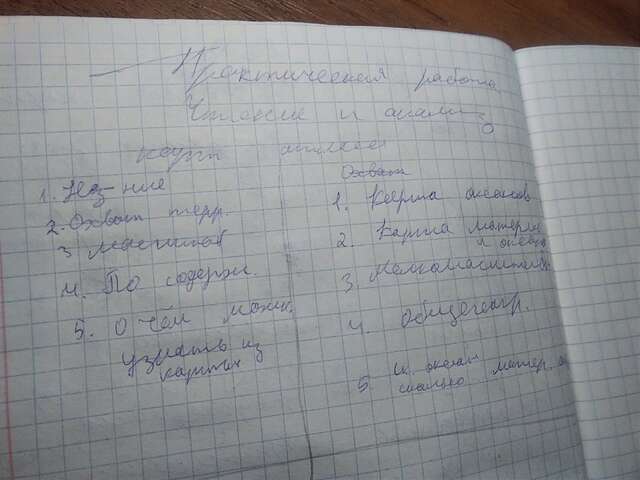 Практическая работа
Чтение и анализ
карты атласа
1. Наз-ние
2. Охват терр.
3 масштаб
4. По содерж.
5. О чём можн.
узнать из
картых
Охват
1. Карта океанов
2. Карта матери
и океано
3 Мелкомасштабн
4. Общегеогр.
5. ск. океан
сколько матер.